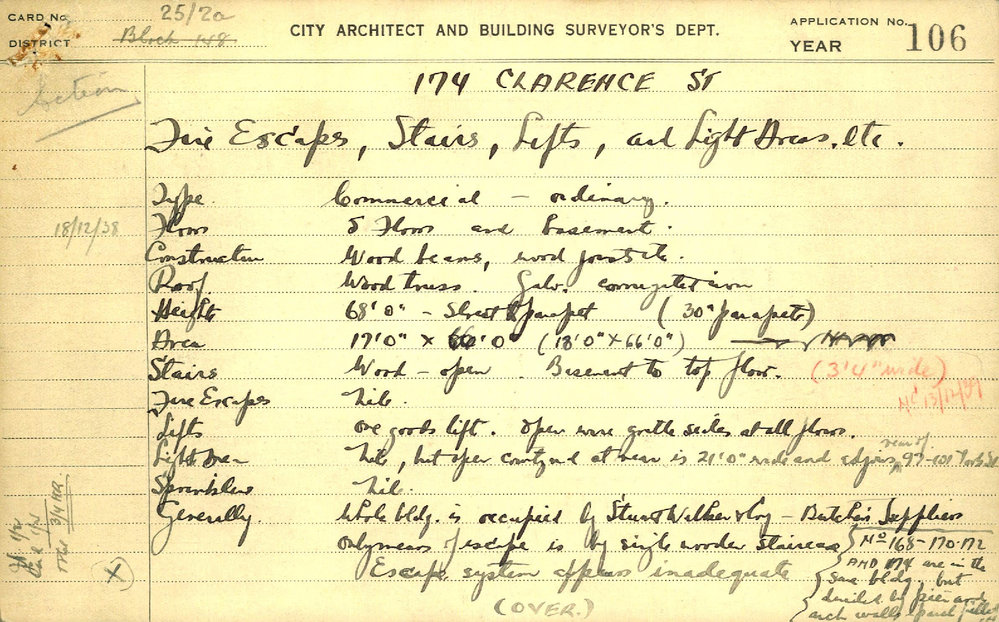 CARD No. 25/2a
DISTRICT Block 148
CITY ARCHITECT AND BUILDING SURVEYOR'S DEPT.
APPLICATION No.
YEAR
106
Action
174 CLARENCE ST
Fire Escapes, Stairs, Lifts, and Light Areas. etc.
Type. Commercial - ordinary.
18/12/38
Floors 5 Floors and basement.
Construction Wood beams, wood joists etc.
Roof. Wood truss. Galv. corrugated iron
Height 68'0" - Street to parapet (30" parapets)
Area 17'0" x 66'0" (18'0" x 66'0")
Stairs Wood - open. Basement to top floor. (3'4" wide)
Fire Escapes Nil.
13/12/39
Lifts One goods lift. Open wire grille sides at all floors.
Light Area Nil, but open courtyard at rear is 21'0" wide and adjoins rear of 97-101 York St
Sprinklers Nil.
Generally. Whole bldg. is occupied by Stuart Walker & Coy - Butchers Suppliers
Only means of escape is by single wooden staircase
Escape system appears inadequate
(OVER.)
No 168-170-172
AND 174 are in the
same bldg. but
divided by pier and
arch walls
X